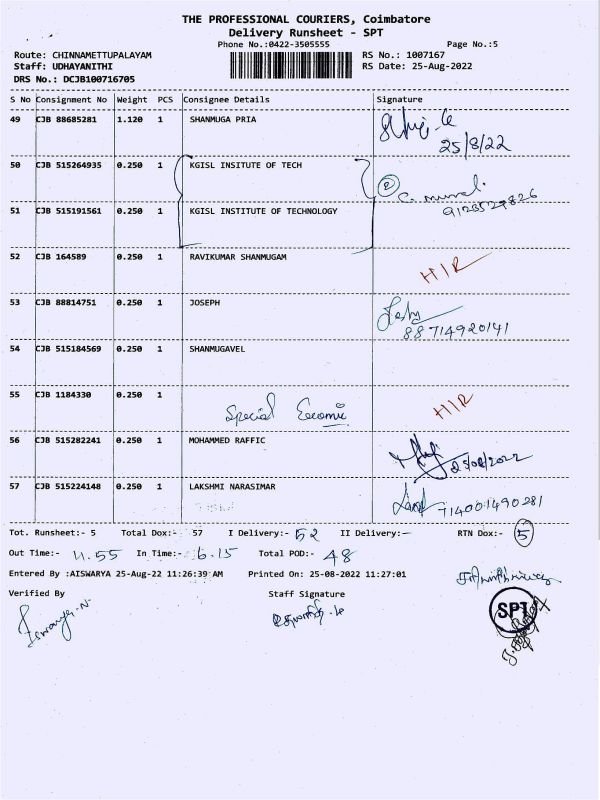 THE PROFESSIONAL COURIERS, Coimbatore
Delivery Runsheet - SPT
Phone No.:0422-3505555 Page No.:5
Route: CHINNAMETTUPALAYAM RS No.: 1007167
Staff: UDHAYANITHI RS Date: 25-Aug-2022
DRS No.: DCJB100716705
S No Consignment No Weight PCS Consignee Details Signature
49 CJB 88685281 1.120 1 SHANMUGA PRIA
25/8/22
50 CJB 515264935 0.250 1 KGISL INSITUTE OF TECH
2
51 CJB 515191561 0.250 1 KGISL INSTITUTE OF TECHNOLOGY
52 CJB 164589 0.250 1 RAVIKUMAR SHANMUGAM
53 CJB 88814751 0.250 1 JOSEPH
88714920141
54 CJB 515184569 0.250 1 SHANMUGAVEL
55 CJB 1184330 0.250 1
Special
56 CJB 515282241 0.250 1 MOHAMMED RAFFIC
25/08/2022
57 CJB 515224148 0.250 1 LAKSHMI NARASIMAR
714001490281
Tot. Runsheet:- 5 Total Dox:- 57 I Delivery:- 52 II Delivery:- — RTN Dox:- 5
Out Time:- 11.55 In Time:- 6.15 Total POD:- 48
Entered By :AISWARYA 25-Aug-22 11:26:39 AM Printed On: 25-08-2022 11:27:01
Verified By Staff Signature
SPT